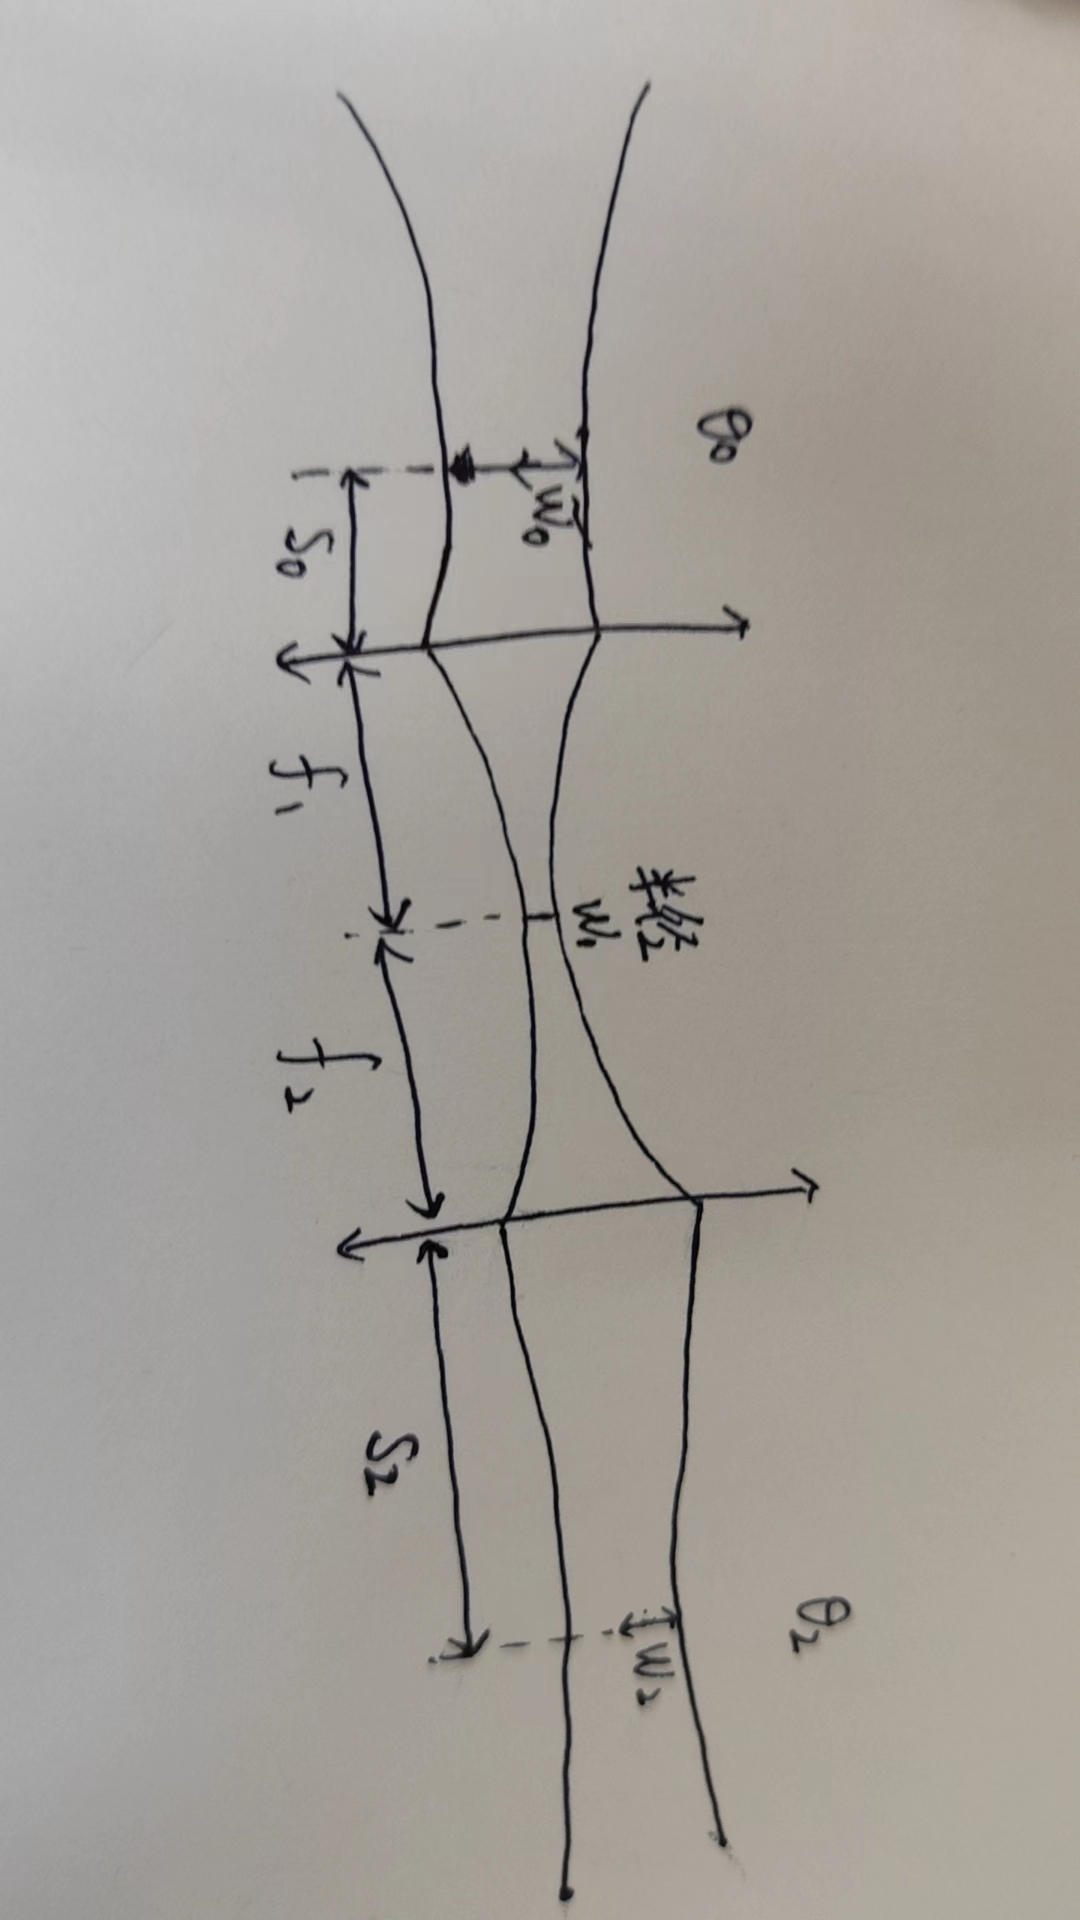 θ₀
θ₂
半径
W₁
W₀
W₂
S₀
f₁
f₂
S₂